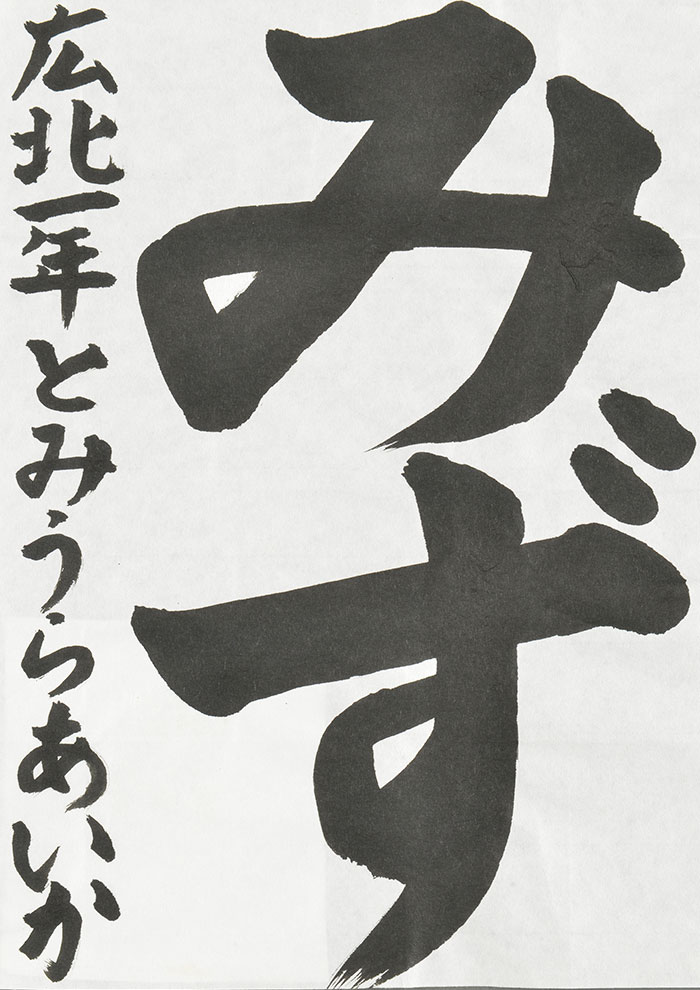 みず
広北一年 とみうらあいか